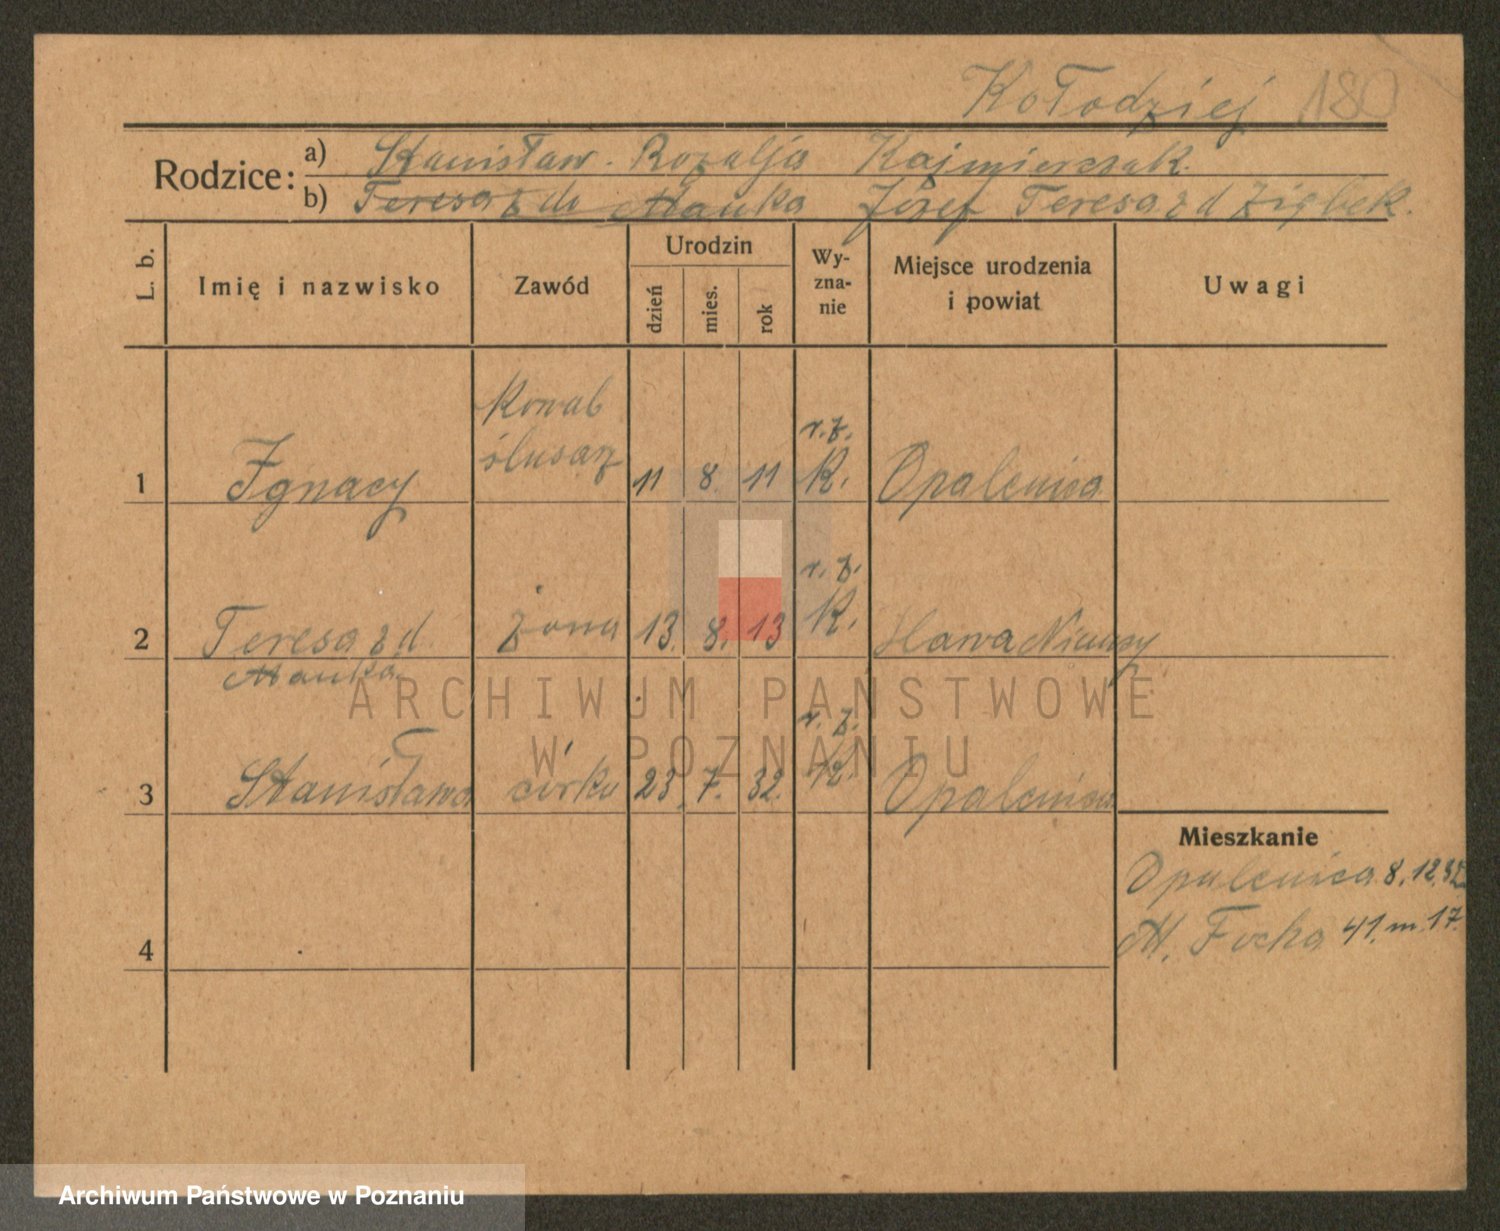 Kołodziej 180
Rodzice: a) Stanisław. Rozalja Kaźmierczak.
b) Teresa z d. Mauka Józef Teresa z d Ziębek.
L. b. Imię i nazwisko Zawód Urodzin dzień mies. rok Wy-zna-nie Miejsce urodzenia i powiat Uwagi
Kowal
r.z.
1 Ignacy ślusarz 11 8. 11 K. Opalenica
r.z.
2 Teresa z d. żona 13. 8. 13 K. Niemcy
Mauka
r.z.
3 Stanisława córka 23. 7. 32. K. Opalenica
Mieszkanie
Opalenica 8.12.32.
4 M. Focha 41. m 17.
ARCHIWUM PAŃSTWOWE
W POZNANIU
Archiwum Państwowe w Poznaniu